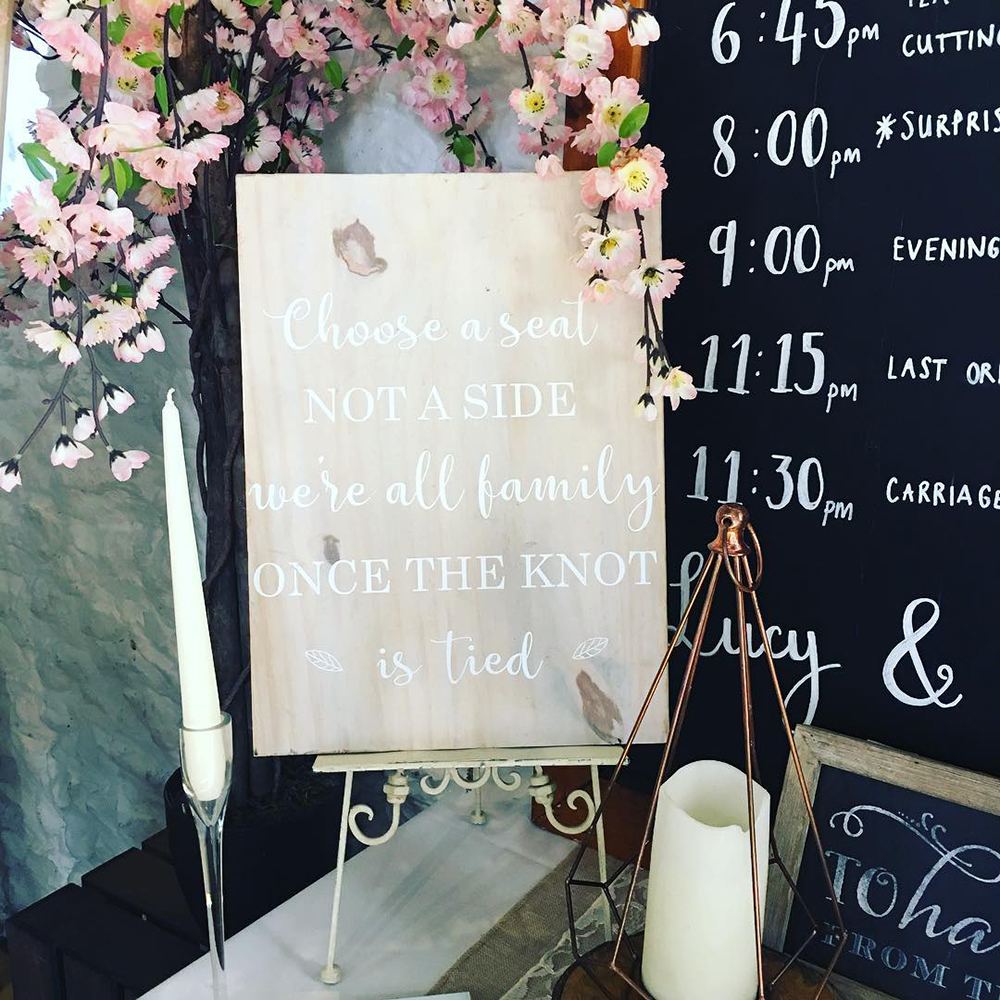 Choose a seat
NOT A SIDE
we're all family
ONCE THE KNOT
is tied
6:45pm
CUTTING
8:00pm *SURPRIS
9:00pm EVENING
11:15pm LAST OR
11:30pm CARRIAGE
Lucy &
TO ha
FROM T